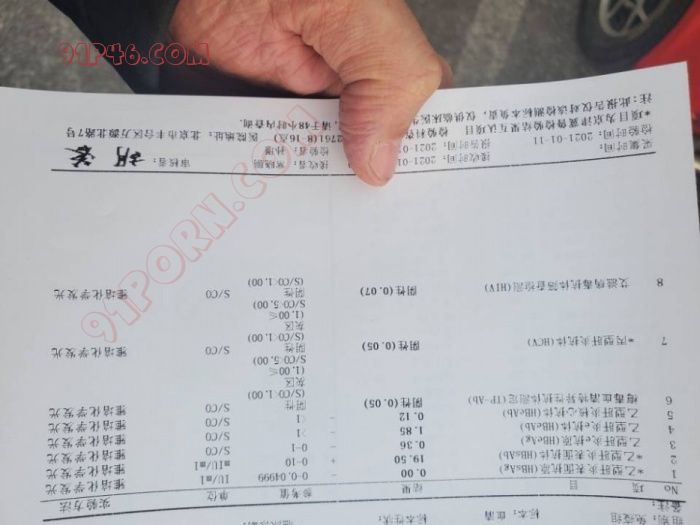 组别：免疫组 标本：血清 标本性状：
备注：
No 项 目 结果 参考值 单位 实验方法
1 *乙型肝炎表面抗原(HBsAg) 0.00 - 0.0-0.04999 IU/ml 雅培化学发光
2 *乙型肝炎表面抗体(HBsAb) 19.50 + 0-10 mIU/ml 雅培化学发光
3 乙型肝炎e抗原(HBeAg) 0.36 - 0-1 S/CO 雅培化学发光
4 乙型肝炎e抗体(HBeAb) 1.85 - >1 S/CO 雅培化学发光
5 乙型肝炎核心抗体(HBcAb) 0.12 - >1 S/CO 雅培化学发光
6 梅毒血清特异性抗体测定(TP-Ab) 阴性(0.05) 阴性 S/CO 雅培化学发光
(S/CO<1.00)
灰区
(1.00≤
S/CO<5.00)
7 *丙型肝炎抗体(HCV) 阴性(0.05) 阴性 S/CO 雅培化学发光
(S/CO<1.00)
灰区
(1.00≤
S/CO<5.00)
8 艾滋病毒抗体筛查检测(HIV) 阴性(0.07) 阴性 S/CO 雅培化学发光
(S/CO<1.00)
采集时间： 接收时间：2021-01 接收者： 审核者：
检验时间：2021-01-11 报告时间：2021-01 检验者：孙
*项目为京津冀鲁检验结果互认项目 检验科 2761(8-16点) 医院地址：北京市丰台区万源北路7号
注：此报告仅对该检测标本负责，仅供临床医生 请于48小时内查询.
91P46.COM
91PORN.COM